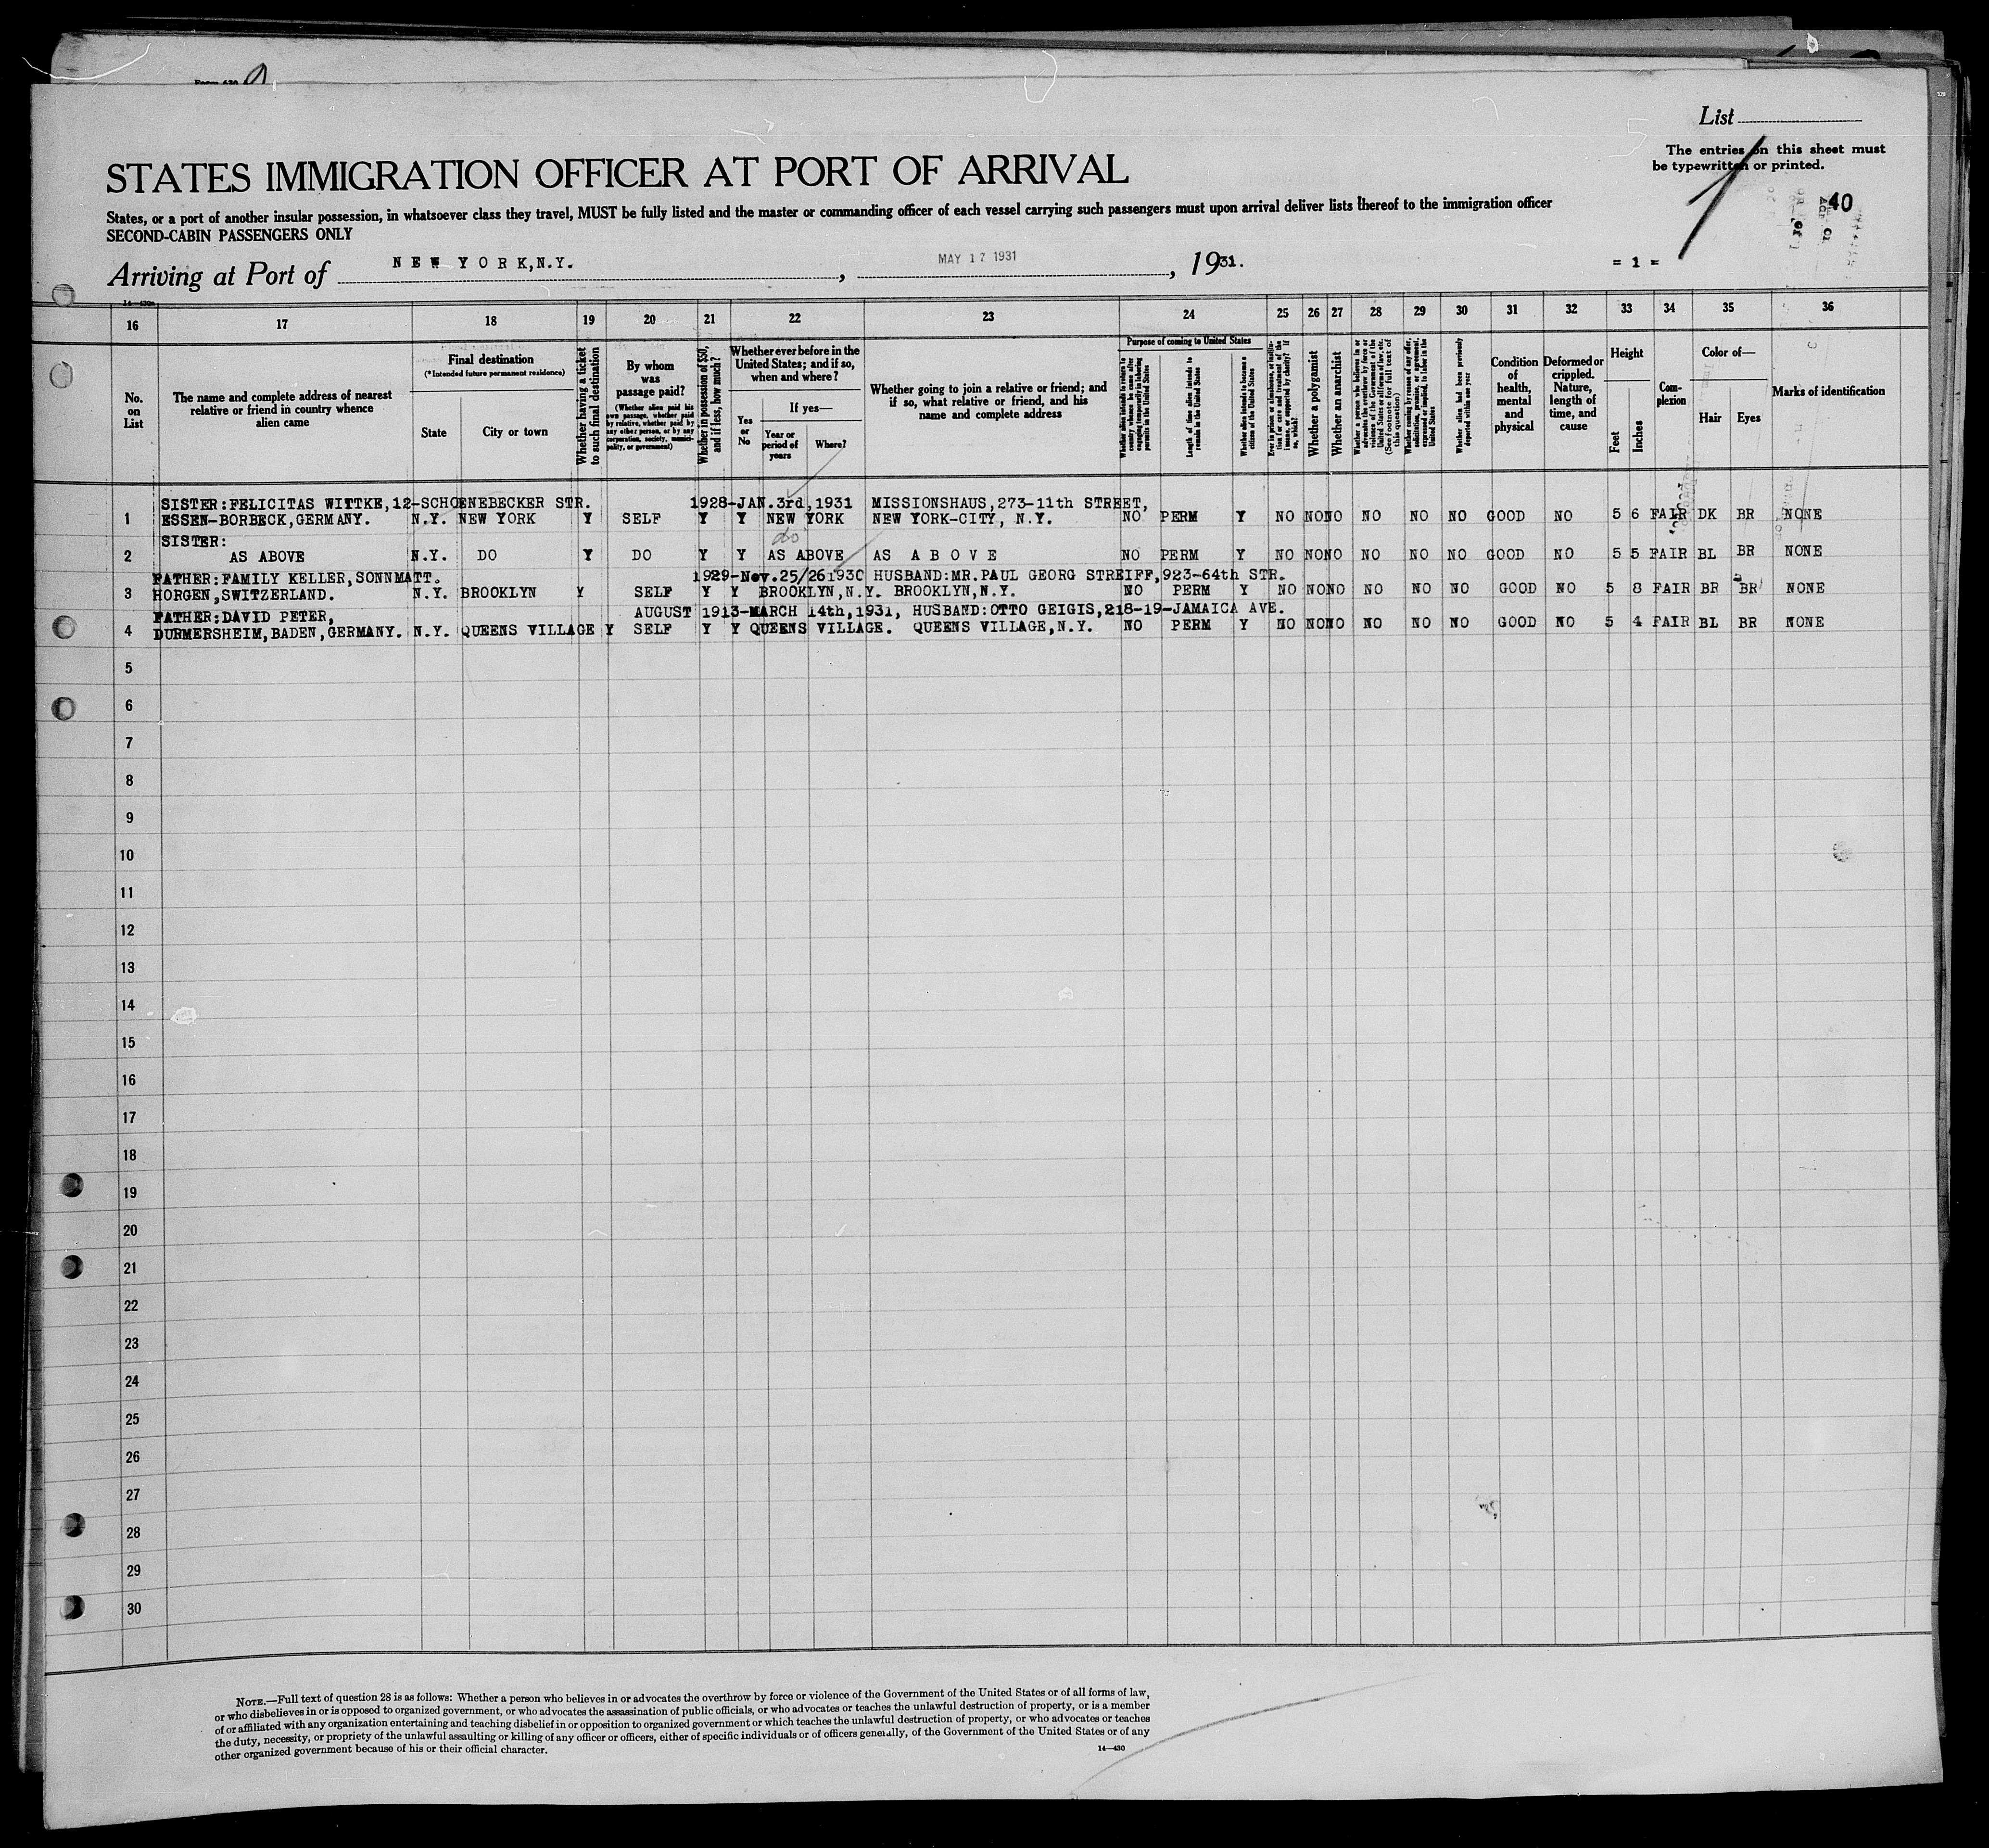 Form 630
List
The entries on this sheet must
be typewritten or printed.
1
40
STATES IMMIGRATION OFFICER AT PORT OF ARRIVAL
States, or a port of another insular possession, in whatsoever class they travel, MUST be fully listed and the master or commanding officer of each vessel carrying such passengers must upon arrival deliver lists thereof to the immigration officer
SECOND-CABIN PASSENGERS ONLY
Arriving at Port of NEW YORK,N.Y., MAY 17 1931, 1931. = 1 =
14—430a
16 17 18 19 20 21 22 23 24 25 26 27 28 29 30 31 32 33 34 35 36
No. on List
The name and complete address of nearest relative or friend in country whence alien came
Final destination
(*Intended future permanent residence)
State
City or town
Whether having a ticket to such final destination
By whom was passage paid?
(Whether alien paid his own passage, whether paid by relative, whether paid by any other person, or by any corporation, society, municipality, or government)
Whether in possession of $50, and if less, how much?
Whether ever before in the United States; and if so, when and where?
Yes or No
If yes—
Year or period of years
Where?
Whether going to join a relative or friend; and if so, what relative or friend, and his name and complete address
Purpose of coming to United States
Whether alien intends to return to country whence he came after engaging temporarily in laboring pursuits in the United States
Length of time alien intends to remain in the United States
Whether alien intends to become a citizen of the United States
Ever in prison or almshouse, or institution for care and treatment of the insane, or supported by charity? If so, which?
Whether a polygamist
Whether an anarchist
Whether a person who believes in or advocates the overthrow by force or violence of the Government of the United States or all forms of law, etc. (See footnote for full text of this question)
Whether coming by reason of any offer, solicitation, promise, or agreement, expressed or implied, to labor in the United States
Whether alien had been previously deported within one year
Condition of health, mental and physical
Deformed or crippled. Nature, length of time, and cause
Height
Feet
Inches
Complexion
Color of—
Hair
Eyes
Marks of identification
SISTER:FELICITAS WITTKE,12-SCHOENEBECKER STR. 1928-JAN.3rd,1931 MISSIONSHAUS,273-11th STREET,
1 ESSEN-BORBECK,GERMANY. N.Y. NEW YORK Y SELF Y Y NEW YORK NEW YORK-CITY, N.Y. NO PERM Y NO NO NO NO NO NO GOOD NO 5 6 FAIR DK BR NONE
SISTER: do
2 AS ABOVE N.Y. DO Y DO Y Y AS ABOVE AS ABOVE NO PERM Y NO NO NO NO NO NO GOOD NO 5 5 FAIR BL BR NONE
FATHER:FAMILY KELLER,SONNMATT. 1929-Nov.25/26 1930 HUSBAND:MR.PAUL GEORG STREIFF,923-64th STR.
3 HORGEN,SWITZERLAND. N.Y. BROOKLYN Y SELF Y Y BROOKLYN,N.Y. BROOKLYN,N.Y. NO PERM Y NO NO NO NO NO NO GOOD NO 5 8 FAIR BR BR NONE
FATHER:DAVID PETER, AUGUST 1913-MARCH 14th,1931, HUSBAND:OTTO GEIGIS,218-19-JAMAICA AVE.
4 DURMERSHEIM,BADEN,GERMANY. N.Y. QUEENS VILLAGE Y SELF Y Y QUEENS VILLAGE. QUEENS VILLAGE,N.Y. NO PERM Y NO NO NO NO NO NO GOOD NO 5 4 FAIR BL BR NONE
5
6
7
8
9
10
11
12
13
14
15
16
17
18
19
20
21
22
23
24
25
26
27
28
29
30
NOTE.—Full text of question 28 is as follows: Whether a person who believes in or advocates the overthrow by force or violence of the Government of the United States or of all forms of law,
or who disbelieves in or is opposed to organized government, or who advocates the assassination of public officials, or who advocates or teaches the unlawful destruction of property, or is a member
of or affiliated with any organization entertaining and teaching disbelief in or opposition to organized government or which teaches the unlawful destruction of property, or who advocates or teaches
the duty, necessity, or propriety of the unlawful assaulting or killing of any officer or officers, either of specific individuals or of officers generally, of the Government of the United States or of any
other organized government because of his or their official character.
14—430